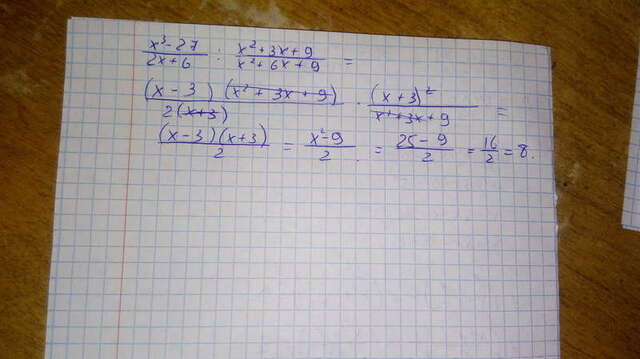 x³-27 / 2x+6 : x²+3x+9 / x²+6x+9 =
(x-3)(x²+3x+9) / 2(x+3) · (x+3)² / x²+3x+9 =
(x-3)(x+3) / 2 = x²-9 / 2 = 25-9 / 2 = 16 / 2 = 8.